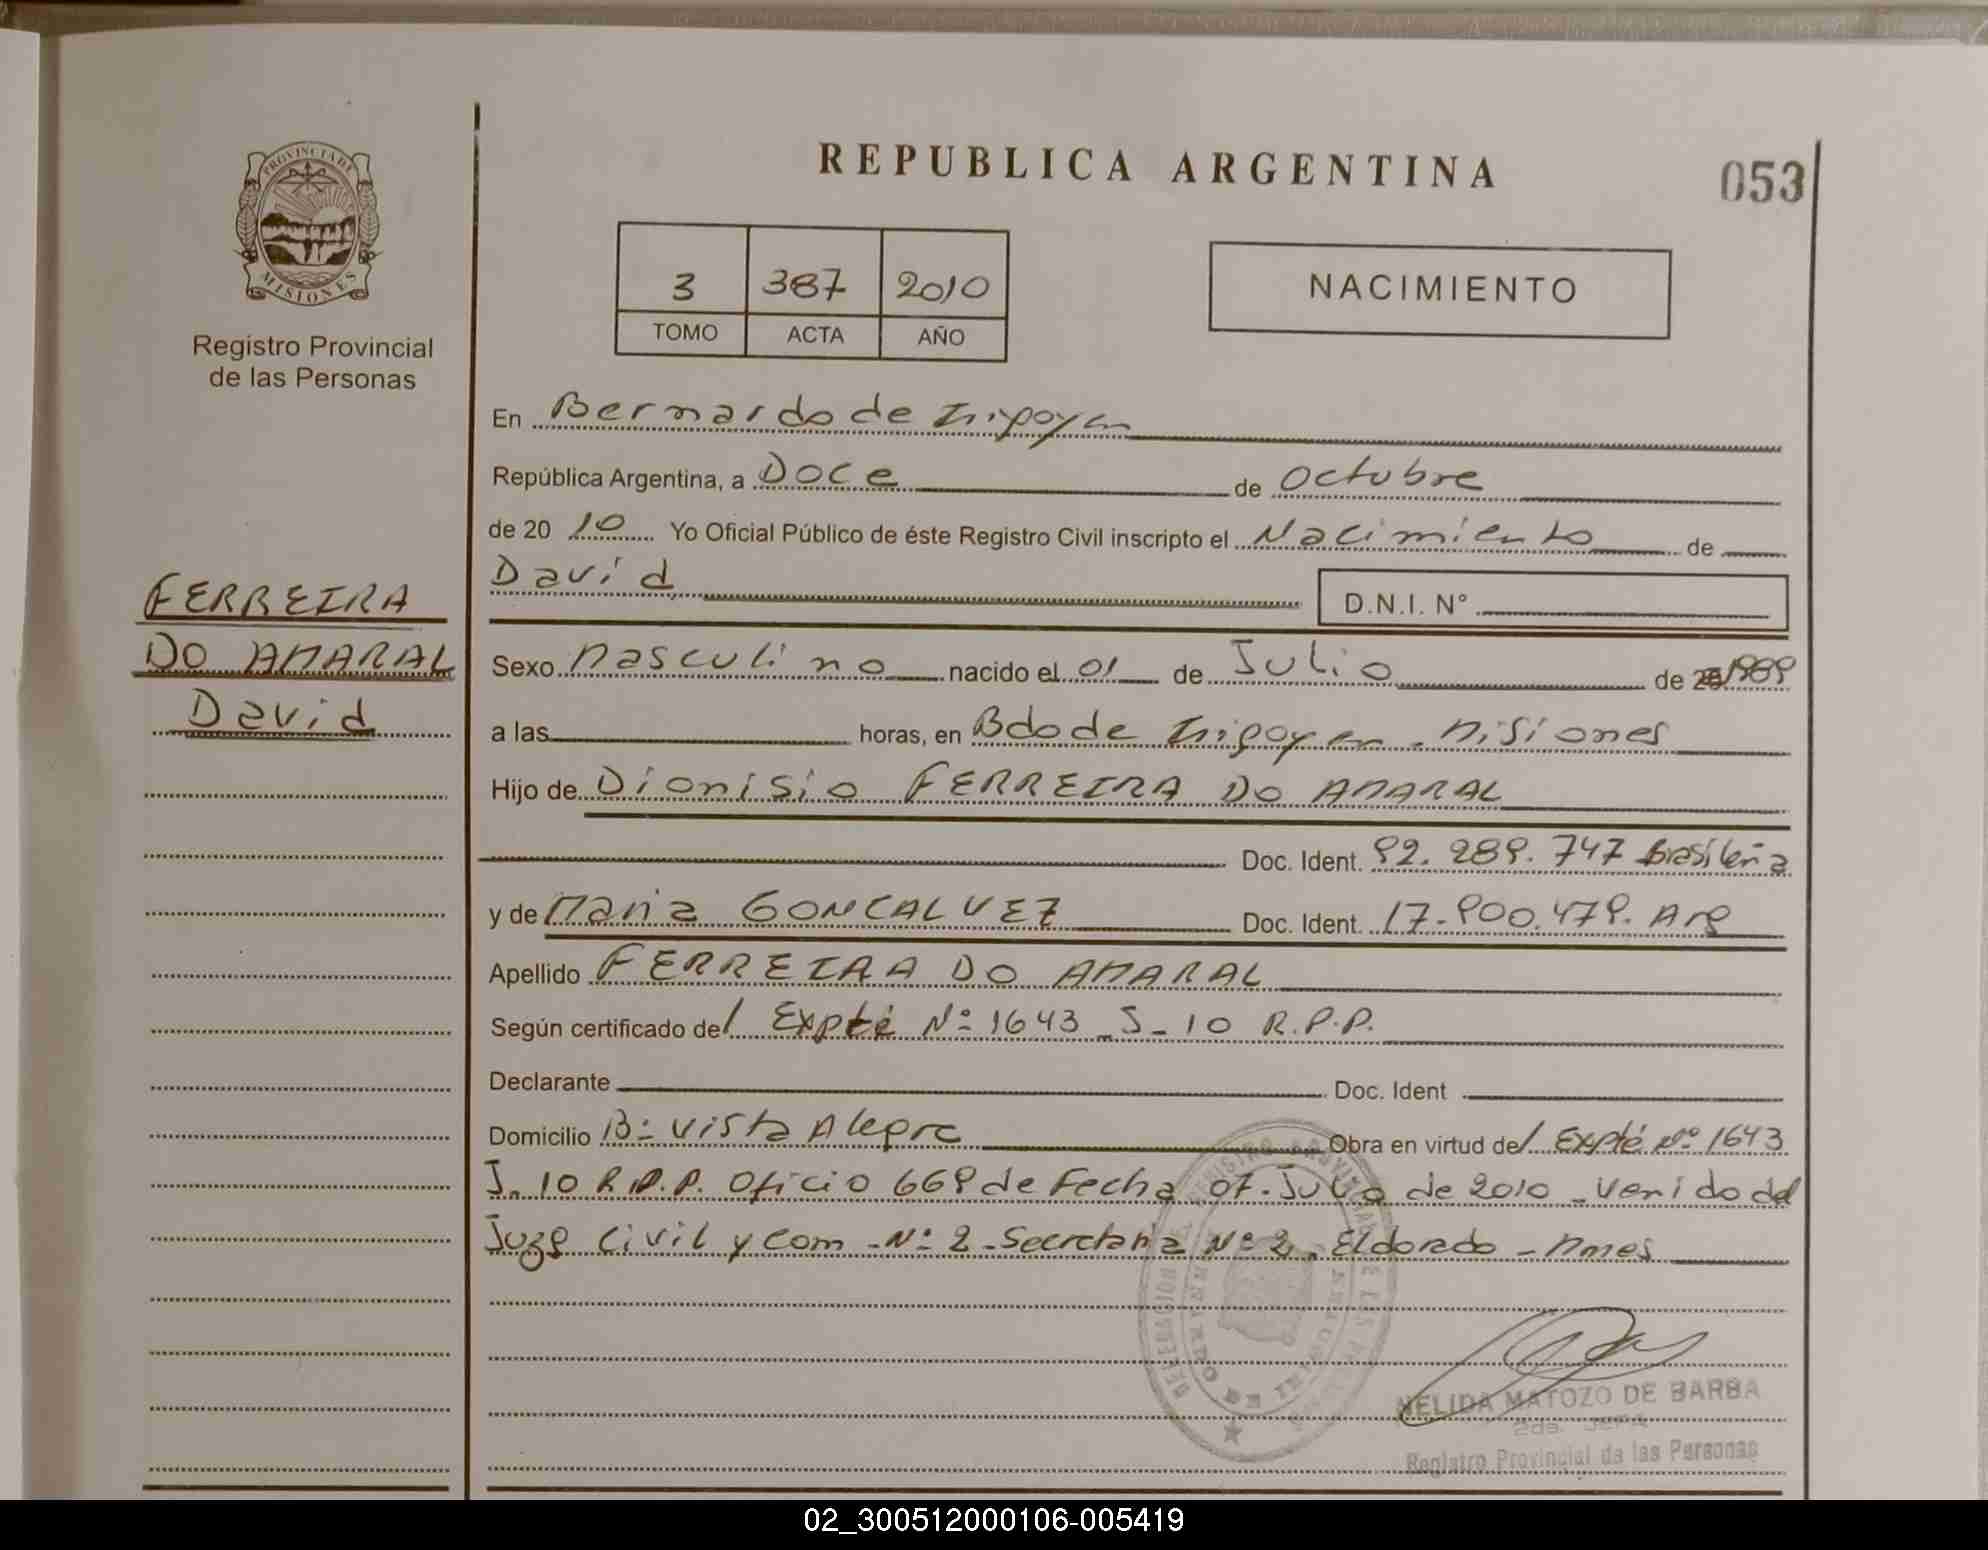 REPUBLICA ARGENTINA
053
PROVINCIA DE
MISIONES
Registro Provincial
de las Personas
3 387 2010
TOMO ACTA AÑO
NACIMIENTO
En Bernardo de Irigoyen
República Argentina, a Doce de Octubre
de 20 10 Yo Oficial Público de éste Registro Civil inscripto el Nacimiento de
David D.N.I. N°
FERREIRA
DO AMARAL
David
Sexo Masculino nacido el 01 de Julio de 1989
a las horas, en Bdo de Irigoyen - Misiones
Hijo de Dionisio FERREIRA DO AMARAL
Doc. Ident. 92.289.747 Brasileña
y de Maria GONCALVEZ Doc. Ident. 17.900.479. Arg
Apellido FERREIRA DO AMARAL
Según certificado del Expté Nº 1643 - J - 10 R.P.P.
Declarante Doc. Ident
Domicilio Bº Vista Alegre Obra en virtud del Expté Nº 1643
J. 10 R.P.P. Oficio 669 de Fecha 07 - Julio de 2010 - Venido del
Juzg Civil y Com - Nº 2 - Secretaria Nº 2. Eldorado - Mnes
NELIDA MATOZO DE BARBA
2da. JEFA
Registro Provincial de las Personas
02_300512000106-005419